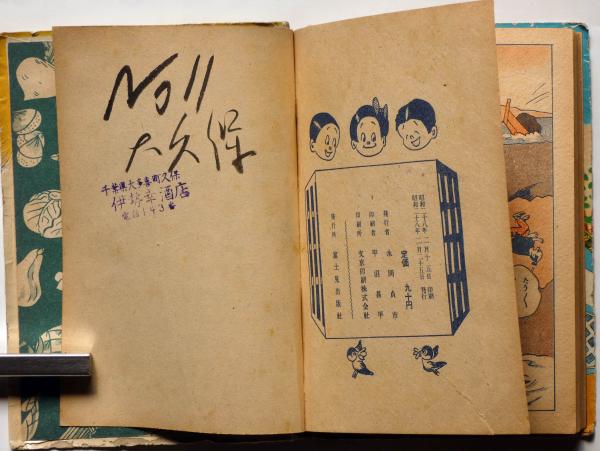 No 11
大久保
千葉県大多喜町久保
伊勢幸酒店
電話143番
昭和二十八年二月十五日 印刷
昭和二十八年二月二十五日 発行
定価 九十円
発行者 永岡貞市
印刷者 甲田喜平
印刷所 文京印刷株式会社
発行所 富士見出版社